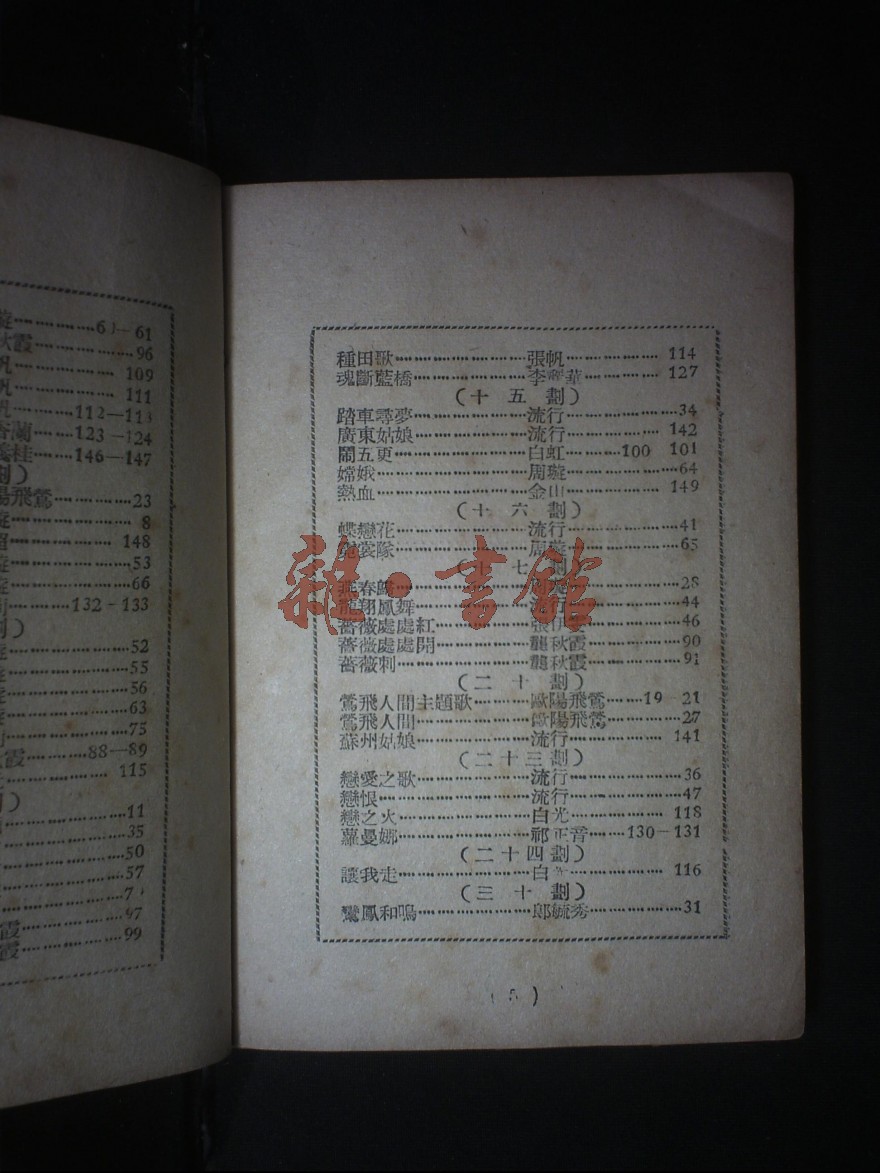 61
秋霞…………96
帆…………109
帆…………111
112—113
香蘭……123-124
桂……146—147
劃）
陽飛鶯…………23
8
超…………148
53
66
132-133
劃）
52
55
56
63
75
霞……88—89
115
）
11
35
50
57
97
霞…………99
種田歌…………張帆…………114
魂斷藍橋…………李華…………127
（十五劃）
踏車尋夢…………流行…………34
廣東姑娘…………流行…………142
鬧五更…………白虹……100 101
嫦娥…………周璇…………64
熱血…………金山…………149
（十六劃）
蝶戀花…………流行…………41
裳隊…………周璇…………65
（十七劃）
燕春…………28
龍翔鳳舞…………流行…………44
薔薇處處紅…………張伊雯…………46
薔薇處處開…………龔秋霞…………90
薔薇刺…………龔秋霞…………91
（二十劃）
鶯飛人間主題歌……歐陽飛鶯……19-21
鶯飛人間…………歐陽飛鶯……27
蘇州姑娘…………流行…………141
（二十三劃）
戀愛之歌…………流行…………36
戀恨…………流行…………47
戀之火…………白光…………118
蘿曼娜…………祁正音……130-131
（二十四劃）
讓我走…………白…………116
（三十劃）
鸞鳳和鳴…………郎毓秀…………31
(5)
雜·書館